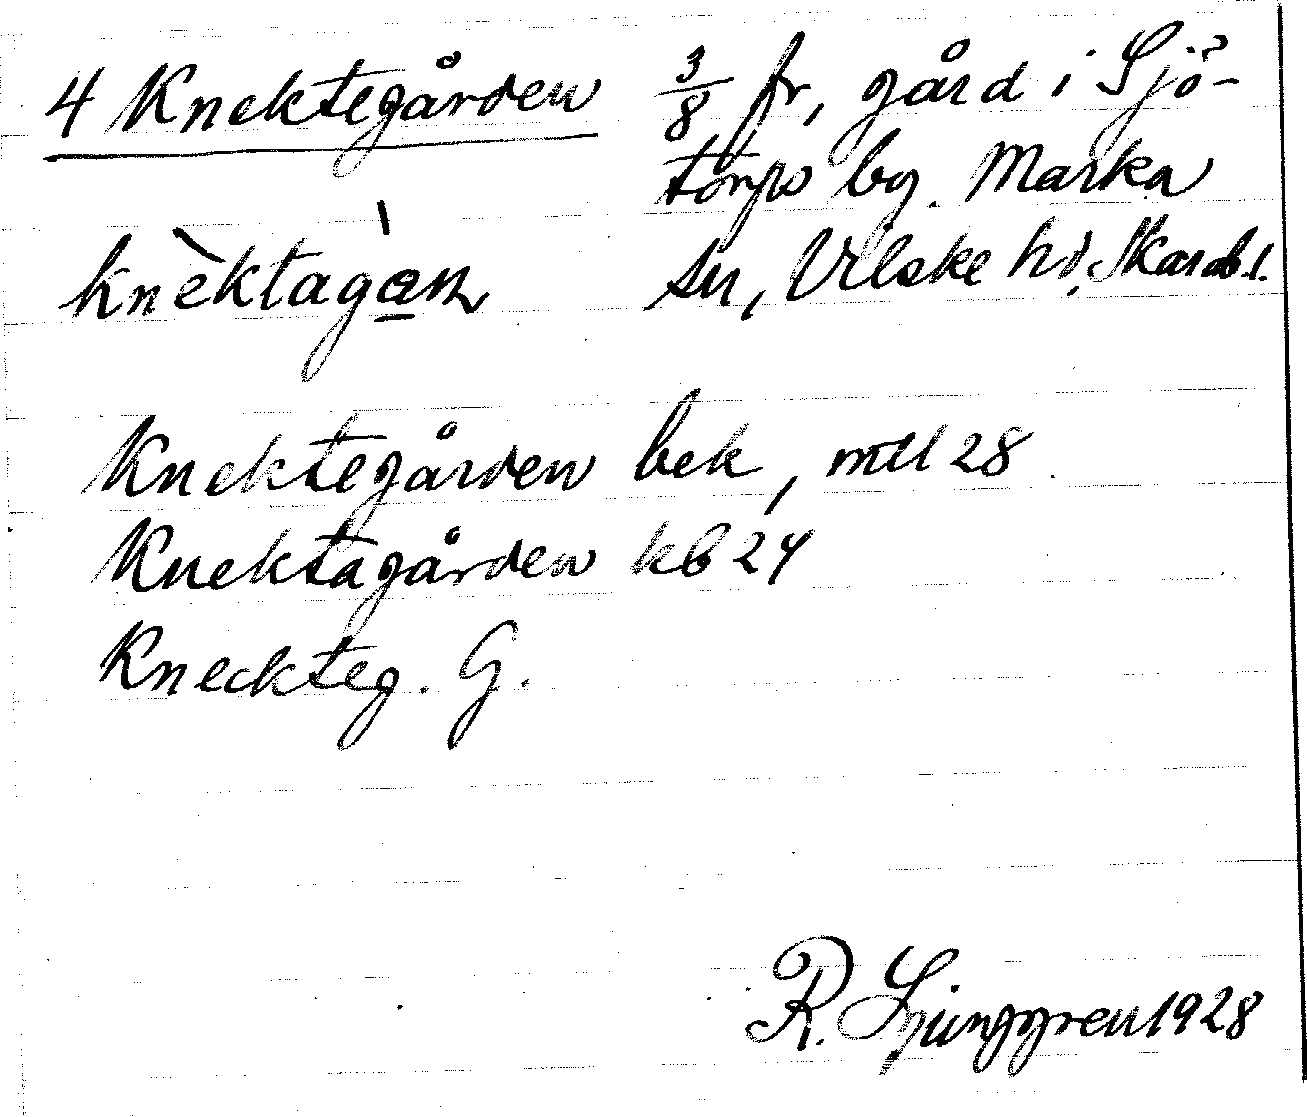 4 Knektegården 3/8 fr, gård i Sjö-
torps by. Marka
sn, Vilske hd, Skarab.l.
knèktagan
Knektegården bek, mtl 28
Knektagården kb 24
Kneckteg. G.
R. Ljunggren 1928